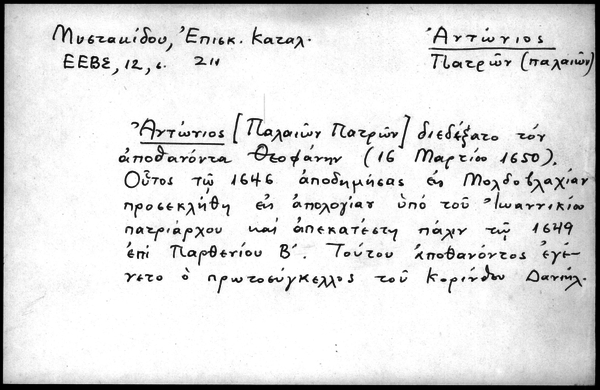 Μυστακίδου, Ἐπισκ. Καταλ.
ΕΕΒΣ, 12, σ. 211
Ἀντώνιος
Πατρῶν (παλαιῶν)
Ἀντώνιος [Παλαιῶν Πατρῶν] διεδέξατο τόν
ἀποθανόντα Θεοφάνην (16 Μαρτίου 1650).
Οὗτος τῷ 1646 ἀποδημήσας εἰς Μολδοβλαχίαν
προσεκλήθη εἰς ἀπολογίαν ὑπό τοῦ Ἰωαννικίου
πατριάρχου καί ἀπεκατέστη πάλιν τῷ 1649
ἐπί Παρθενίου Β΄. Τούτου ἀποθανόντος ἐγέ-
νετο ὁ πρωτοσύγκελλος τοῦ Κορίνθου Δανιήλ.